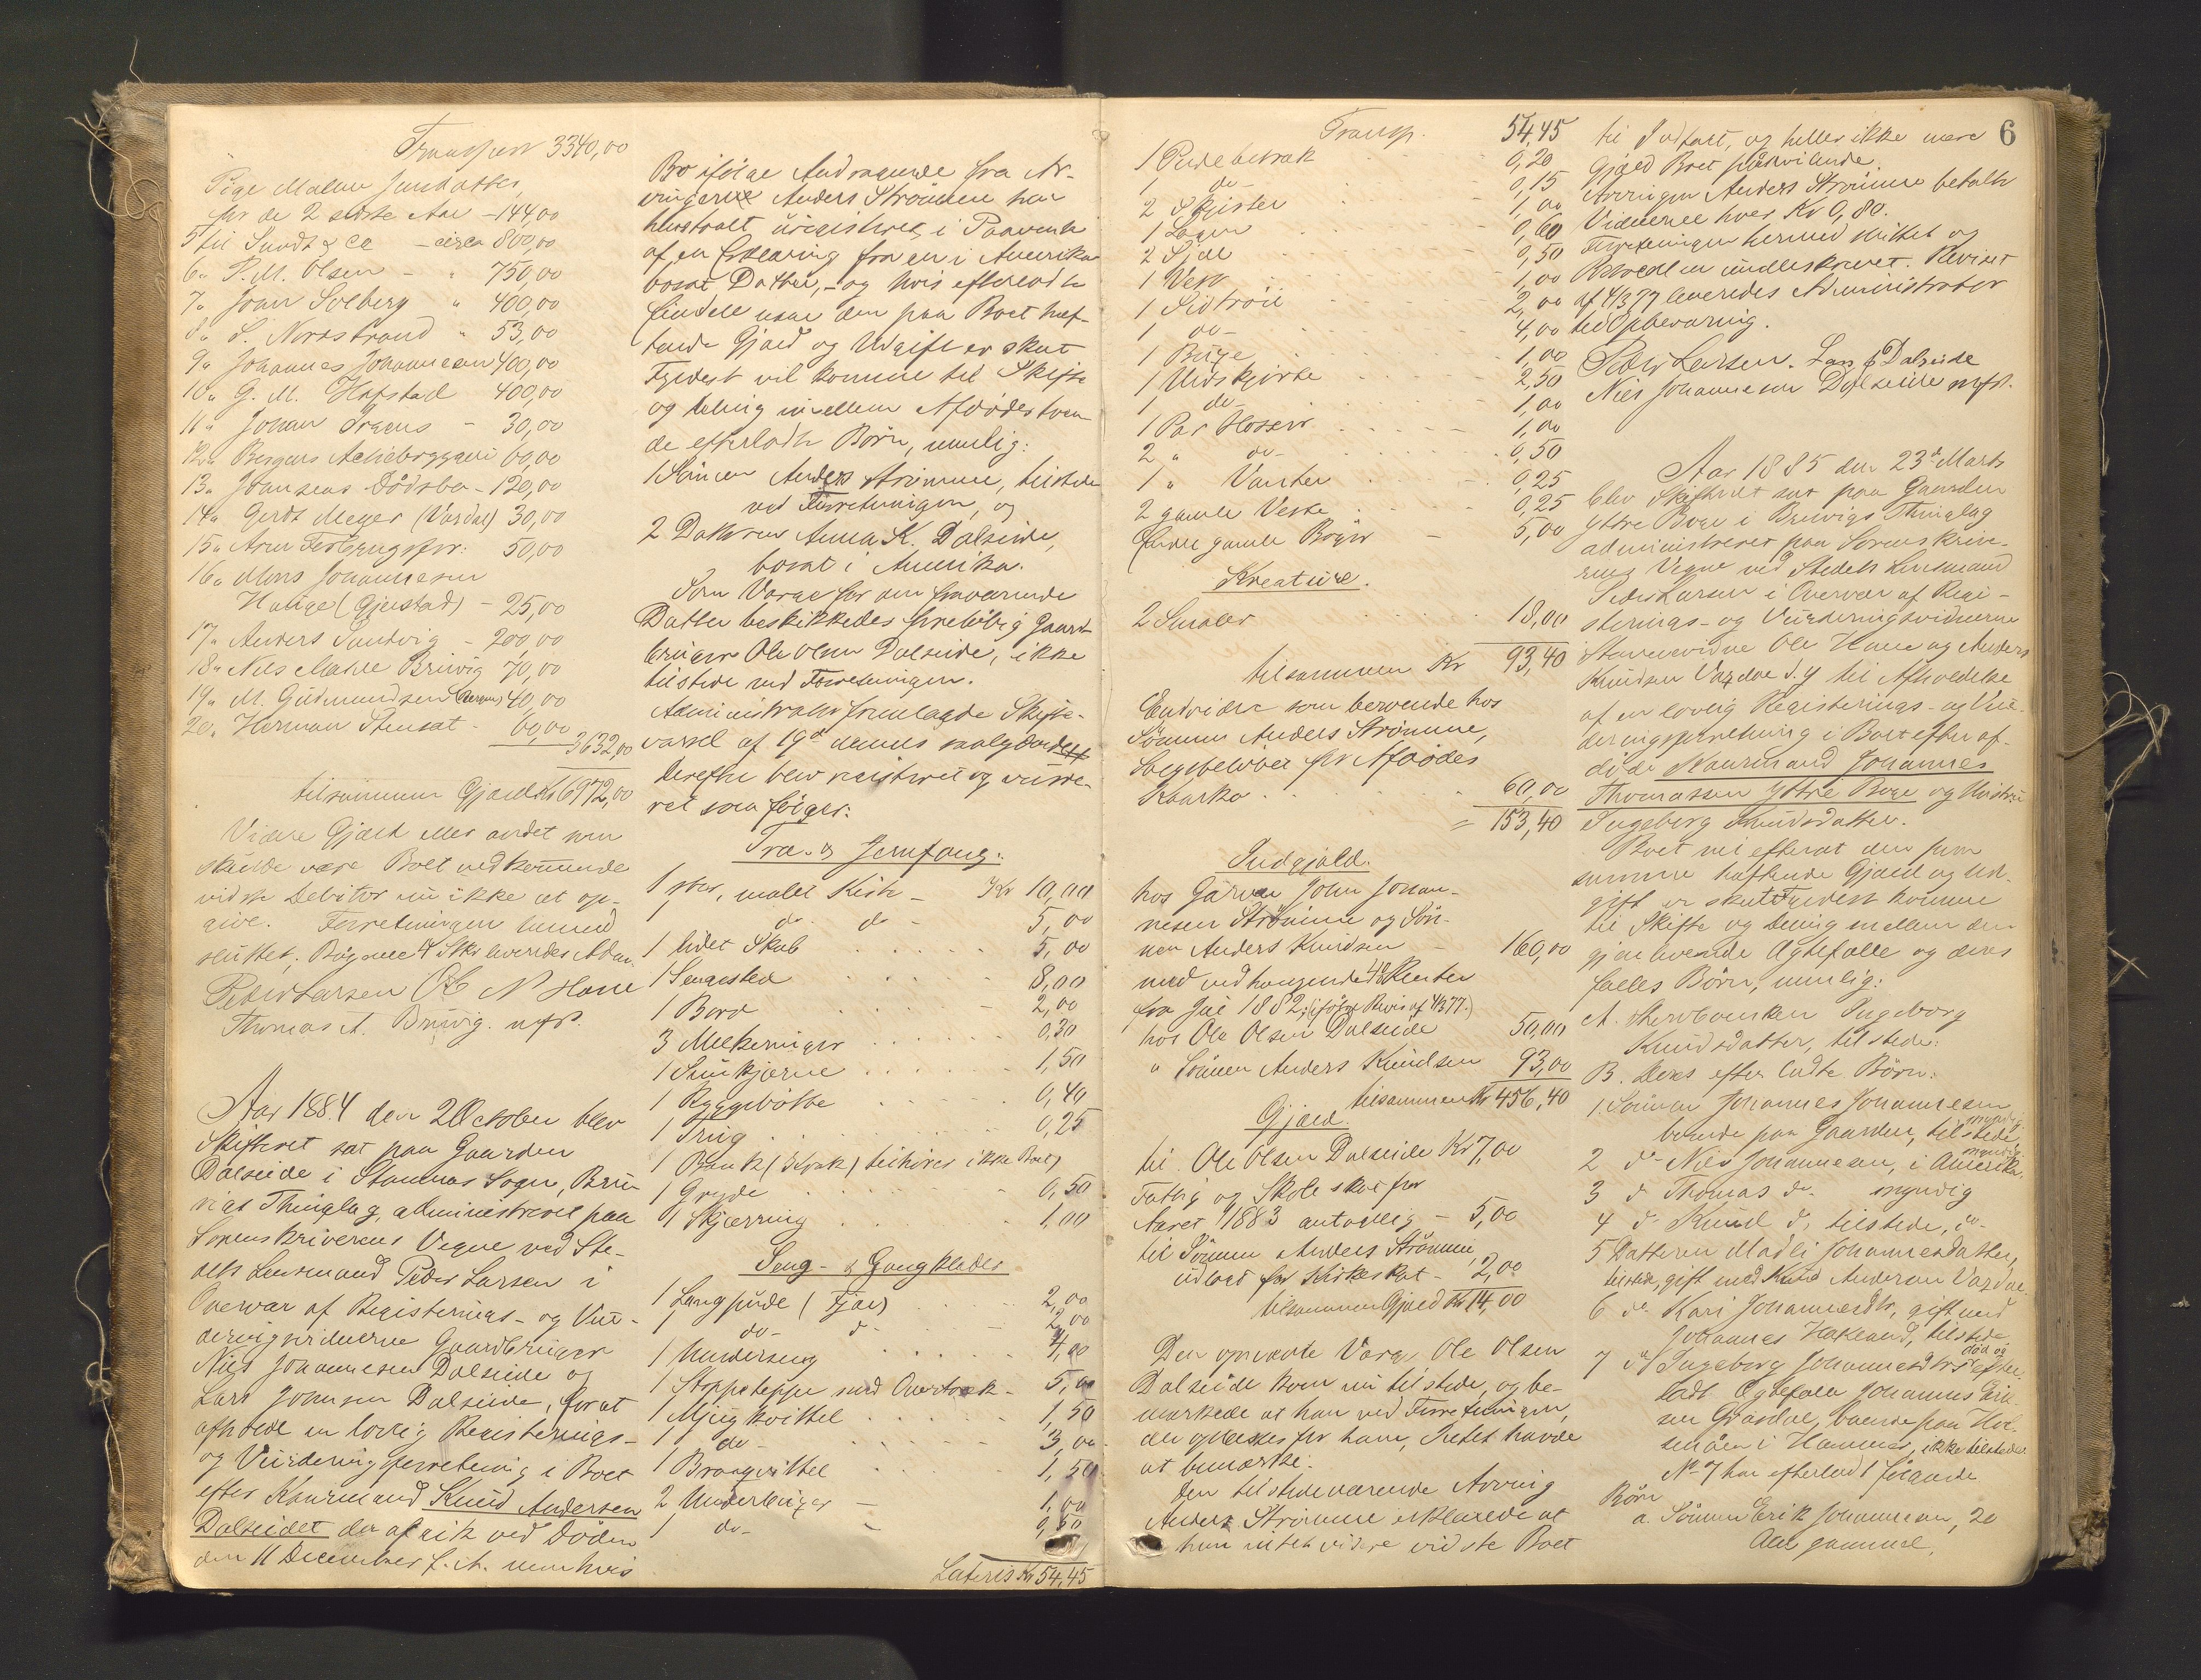 Transport 3340,00
Pige Malene Jensdatter,
for de 2 sidste Aar - 144,00
5 til Sundt & Co - circa 800,00
6 " P. M. Olsen - " 750,00
7 " Joan Solberg " 400,00
8 " S. Nordstrand " 53,00
9 " Johannes Johannesen 400,00
10 " G. M. Hopstad 400,00
11 " Johan Irgens - 30,00
12 " Bergens Actiebryggeri 60,00
13 " Joansens Dödsbo - 120,00
14 " Gerdt Meyer (Vardal) 30,00
15 " Arne 50,00
16 " Mons Johannesen
Hauge (Gjerstad) - 25,00
17 " Anders Sandvig - 200,00
18 " Nils Mahle Bruvig 70,00
19 " M. Gudmundsen 40,00
20 " Herman Stensat - 60,00
3632,00
tilsammen Gjæld Kr 6972,00
Videre Gjæld eller andet som
skulde være Boet vedkommende
vidste Debitor nu ikke at op-
give. Forretningen hermed
sluttet. Bögerne 4 Stkr leveredes
Peder Larsen Ole N Hane
Thomas A. Bruvig. mfP.
Aar 1884 den 2 October blev
Skifteret sat paa Gaarden
Dalseide i Stamnæs Sogn, Bru-
vigs Thinglag, administreret paa
Sorenskriverens Vegne ved Ste-
dets Lensmand Peder Larsen i
Overvær af Registerings- og Vur-
deringsvidnerne Gaardbruger
Nils Johannesen Dalseide og
Lars Joansen Dalseide, for at
afholde en lovlig Registerings-
og Vurderingsforretning i Boet
efter Kaarmand Knud Andersen
Dalseidet der afgik ved Döden
den 11 December f. A. men hvis
Bo ifölge Andragende fra Ar-
vingerne Anders Strömme har
henstaaet uregistreret, i Paavente
af en Erklæring fra en i Amerika
bosat Datter, - og hvis efterladte
Eiendele usae den paa Boet hef-
tende Gjæld og Udgift er skeet
Fyldest vil komme til Skifte
og Deling imellem Afdödes tven-
de efterladte Börn, nemlig:
1 Sönnen Anders Strömme, tilstede
ved Forretningen, og
2 Datteren Anna K. Dalseide,
bosat i Amerika.
Som Værge for den fraværende
Datter beskikkedes foreløbig Gaard-
bruger Ole Olsen Dalseide, ikke
tilstede ved Forretningen.
Administrator fremlagde Skifte-
varsel af 19de dennes
Derefter blev registreret og vurde-
ret som følger:
Træ- & Jernfang:
1 stor, malet Kiste - Kr 10,00
1 do do - 5,00
1 lidet Skab 5,00
1 Sengested 8,00
1 Bord 2,00
3 Melkeringer 0,30
1 Smukjerne 1,50
1 Ryggebötte 0,40
1 Trug 0,25
1 Bænk ( ) tilhörer ikke Boet)
1 Gryde 0,50
1 Skjæring 1,00
Seng- & Gangklæder
1 Langpude (Fjær) 2,00
1 do- d- 2,00
1 Underseng 4,00
1 Stoppeteppe med Overtræk - 5,00
1 Mjugkvittel 1,50
1 do- 3,00
1 Brongvittel 1,50
2 Underbuxer 1,00
1 do- 0,50
Lateris Kr 54,45
Transp. 54,45
6
1 Pudebetræk 0,20
1 do- 0,15
2 Skjorter 1,00
1 Lagen 0,60
2 Sjal 0,50
1 Vest 1,00
1 Sidtröie 2,00
1 do- 4,00
1 Buxe 1,00
1 Uldskjorte 2,50
1 do- 1,00
1 Par Hoser 1,00
2 " do- 0,50
1 " Vanter 0,25
2 gamle Veste 0,25
Endel gamle Böger - 5,00
Kreature.
2 Smaler 18,00
tilsammen Kr 93,40
Endvidere som beroende hos
Sönnen Anders Strömme,
Salgsbelöbet for Afdödes
Kaarko 60,00
= 153,40
Indgjæld.
hos Garver John Johan-
nesen Strömme og Sön-
nen Anders Knudsen - 160,00
med vedhængende 4% Renter
fra Juli 1882, (ifölge Revis af 4/3 77.)
hos Ole Olsen Dalseide 50,00
" Sönnen Anders Knudsen 93,00
tilsammen Kr 456,40
Gjæld.
til Ole Olsen Dalseide Kr 7,00
Fattig og Skoleskat for
Aaret 1883 antagelig - 5,00
til Sönnen Anders Strömme,
udlagt for Kirkeskat - 2,00
tilsammen Gjæld Kr 14,00
Den opnævnte Værge, Ole Olsen
Dalseide kom nu tilstede, og be-
mærkede at han ved Forretningen,
der oplæstes for ham, Intet havde
at bemærke.
Den tilstedeværende Arving
Anders Strömme erklærede at
han intet videre vidste Boet
til Indtægt, og heller ikke mere
Gjæld Boet paahvilende.
Arvingen Anders Strömme betalte
Vidnerne hver Kr 0,80.
Forretningen hermed sluttet og
Protocollen underskrevet. Reviset
af 4/3 77 leveredes Administrator
til Opbevaring.
Peder Larsen. Lars J Dalseide
Nils Johannesen Dalseide mfP.
Aar 1885 den 23de Marts
blev Skifteret sat paa Gaarden
Yttre Boge i Bruvigs Thinglag
administreret paa Sorenskrive-
rens Vegne ved Stedets Lensmand
Peder Larsen i Overvær af Regi-
sterings- og Vurderingsvidnerne
Stevnevidne Ole Hane og Anders
Knudsen Vaxdal d. y. til Afholdelse
af en lovlig Registerings- og Vur-
deringsforretning i Boet efter af-
döde Kaarmand Johannes
Thomassen Yttre Boge og Hustru
Ingeborg Knudsdatter.
Boet vil efterat den
samme heftende Gjæld og Ud-
gift er skeet Fyldest komme
til Skifte og Deling mellem den
gjenlevende Ægtefælle og deres
fælles Börn, nemlig:
A. Stervboenken Ingeborg
Knudsdatter, tilstede.
B. Deres efterladte Börn:
1. Sönnen Johannes Johannesen
boende paa Gaarden, tilstede, myndig.
2 d- Nils Johannesen, i Amerika, myndig.
3 d Thomas do- myndig
4 d- Knud do, tilstede, do-
5 Datteren Madli Johannesdatter,
tilstede, gift med Knud Andersen Vaxdal
6 do Kari Johannesdtr, gift med
Johannes Hakland, tilstede
7 do Ingeborg Johannesdtr död og efter-
ladt Ægtefælle Johannes Erik-
sen Gräsdal, boende paa Hol-
i Hammer, ikke tilstede
No 7 har efterladt fölgende
Börn
a. Sönnen Erik Johannesen, 20
Aar gammel,